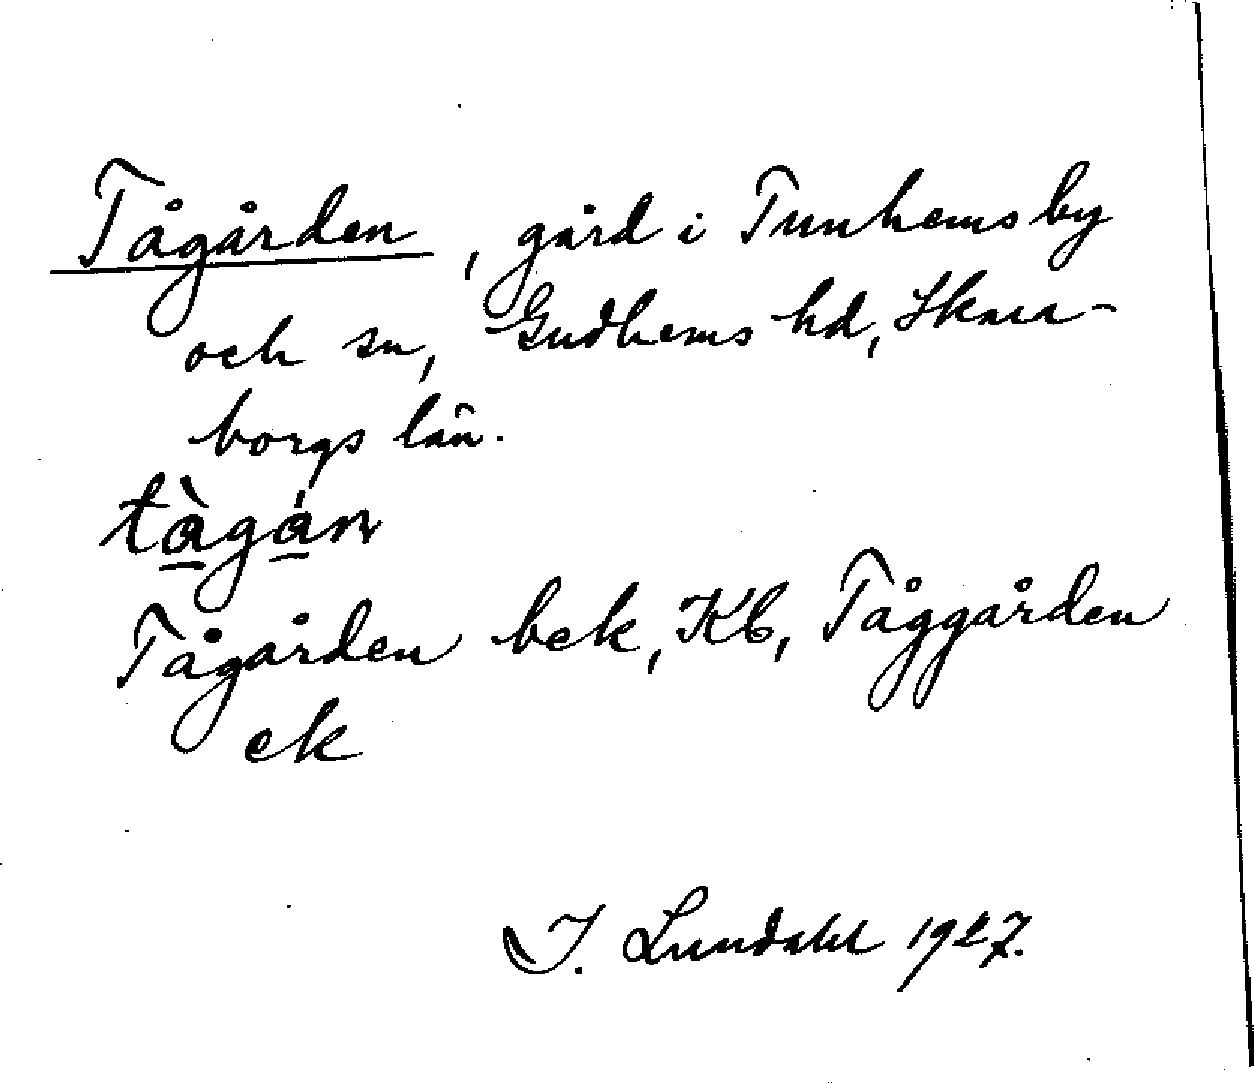 Tågården, gård i Tunhems by
och sn, Gudhems hd, Skara-
borgs län.
tàgán
Tågården bek, Kb, Tåggården
ek
I. Lundahl 1927.